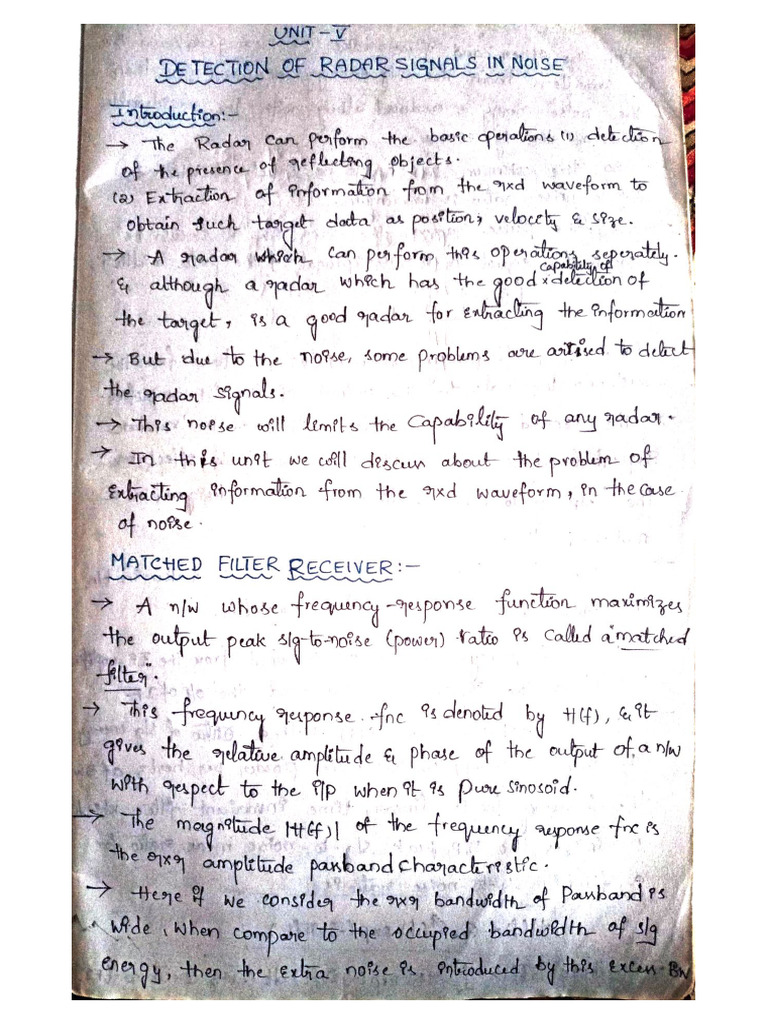 UNIT-V
DETECTION OF RADAR SIGNALS IN NOISE
Introduction:-
→ The Radar can perform the basic operations (1) detection
of the presence of reflecting objects.
(2) Extraction of information from the rxd waveform to
obtain such target data as position, velocity & size.
→ A radar which can perform this operations seperately.
& although a radar which has the good capability of × detection of
the target, is a good radar for extracting the information
→ But due to the noise, some problems are arised to detect
the radar signals.
→ This noise will limits the capability of any radar.
→ In this unit we will discuss about the problem of
extracting information from the rxd waveform, in the case
of noise.
MATCHED FILTER RECEIVER:-
→ A n/w whose frequency-response function maximizes
the output peak s/g-to-noise (power) ratio is called a "matched
filter".
→ This frequency response fnc is denoted by H(f), & it
gives the relative amplitude & phase of the output of a n/w
with respect to the i/p when it is pure sinosoid.
→ The magnitude |H(f)| of the frequency response fnc is
the rxr amplitude passband characteristic.
→ Here if we consider the rxr bandwidth of Passband is
wide, when compare to the occupied bandwidth of s/g
energy, then the extra noise is introduced by this excess BW